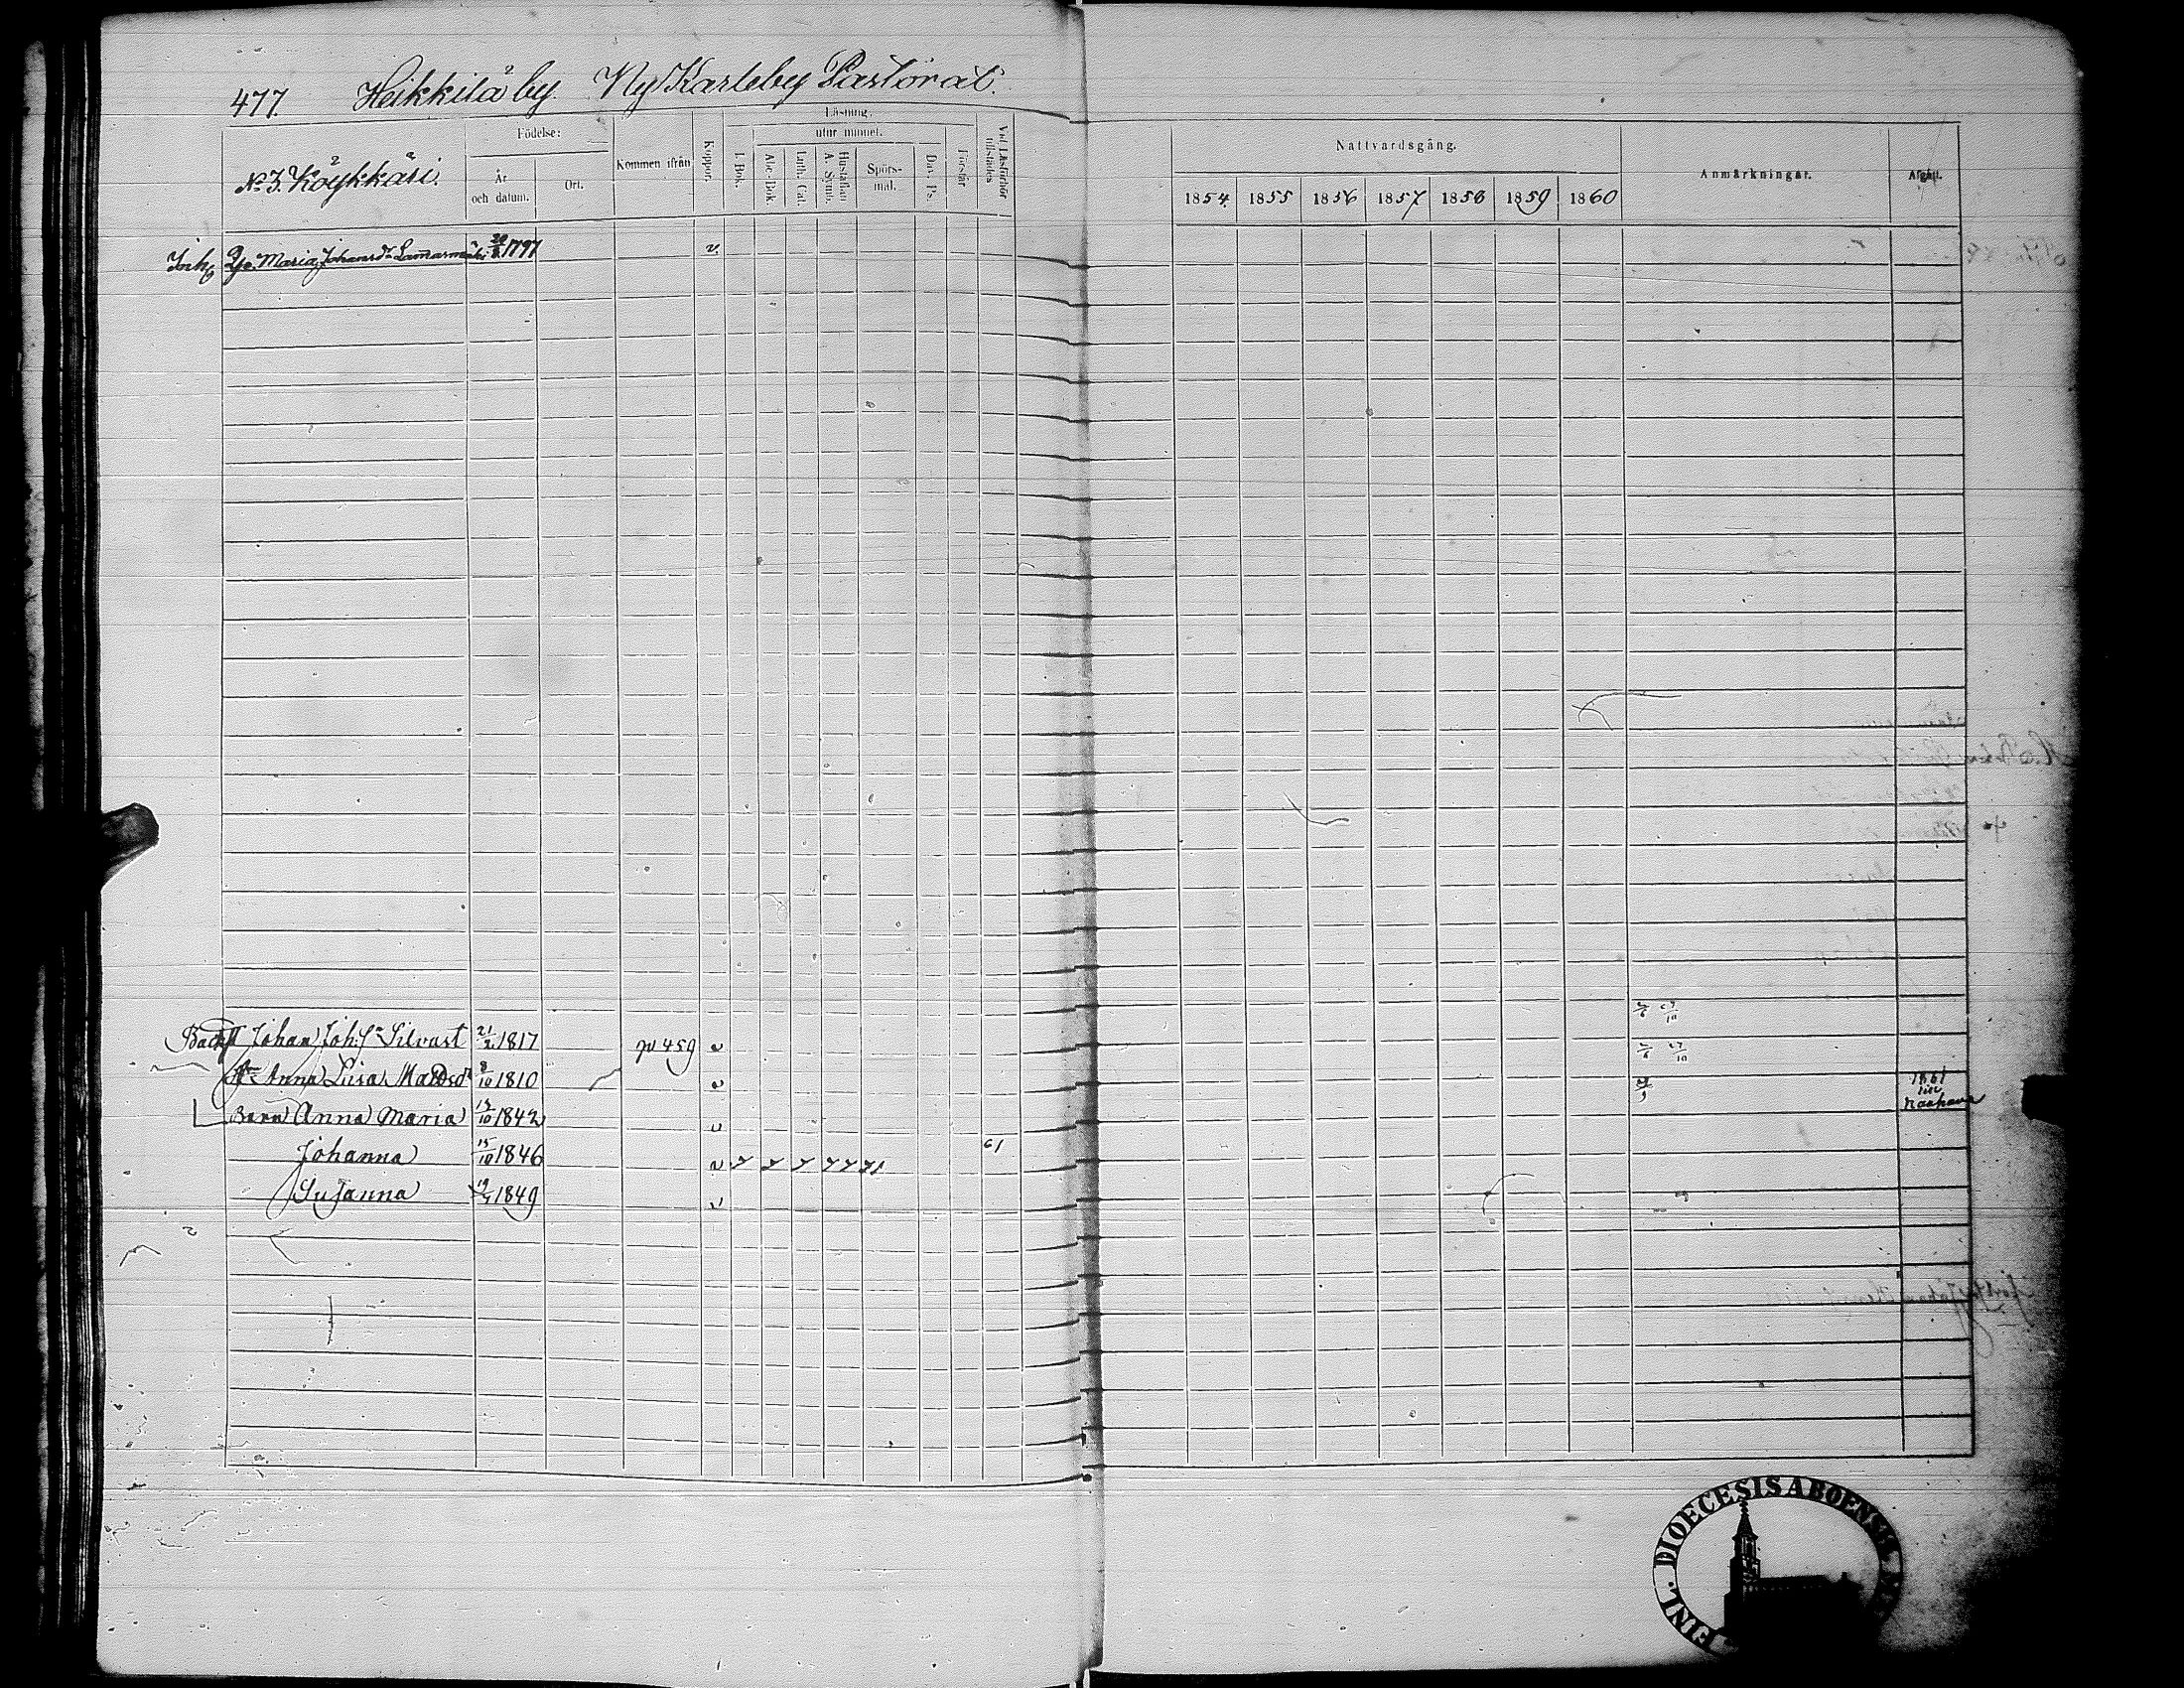 477. Heikkilä by. Ny Karleby Pastorat.
No 3. Köykkäri.
Födelse:
År och datum.
Ort.
Kommen ifrån
Koppor.
Läsning.
utur minnet.
I. Bok.
Abc-Bok
Luth. Cat.
Hustaflan
A. Symb.
Spörs-
mål.
Dav. Ps.
Förstår
Vid Läsförhör
tillstädes
Nattvardsgång.
1854. 1855 1856 1857 1858 1859 1860
Anmärkningar.
Afgått.
Inh. Maria Johansdr 1797 v.
Johan Joh:s Silvast 21/2 1817 459 v
Anna Lisa Mattsdr 8/10 1810 v
Barn Anna Maria 13/10 1842 v
1861
till
Johanna 15/10 1846 v 61
Susanna 19/7 1849 v
FINL. DIOECESIS ABOENSIS